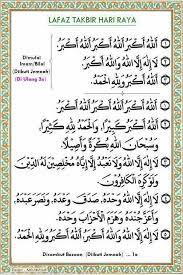 LAFAZ TAKBIR HARI RAYA
Dimulai
Imam/Bilal
(Diikuti Jemaah)
(Di Ulang 3x)
اَللهُ أَكْبَرُ اَللهُ أَكْبَرُ اَللهُ أَكْبَرُ
لَا إِلَهَ إِلَّا اللهُ وَاللهُ أَكْبَرُ
اَللهُ أَكْبَرُ وَلِلَّهِ الْحَمْدُ
اَللهُ أَكْبَرُ كَبِيْرًا، وَالْحَمْدُ لِلَّهِ كَثِيْرًا
وَسُبْحَانَ اللهِ بُكْرَةً وَأَصِيْلًا،
لَا إِلَهَ إِلَّا اللهُ وَلَا نَعْبُدُ إِلَّا إِيَّاهُ مُخْلِصِيْنَ لَهُ الدِّيْنَ
وَلَوْكَرِهَ الْكَافِرُوْنَ
لَا إِلَهَ إِلَّا اللهُ وَحْدَهُ، صَدَقَ وَعْدَهُ، وَنَصَرَعَبْدَهُ،
وَأَعَزَّ جُنْدَهُ وَهَزَمَ الْأَحْزَابَ وَحْدَهُ
لَا إِلَهَ إِلَّا اللهُ وَاللهُ أَكْبَرُ اَللهُ أَكْبَرُ وَلِلَّهِ الْحَمْدُ
Disambut Bacaan (Diikuti Jemaah) ... 1x